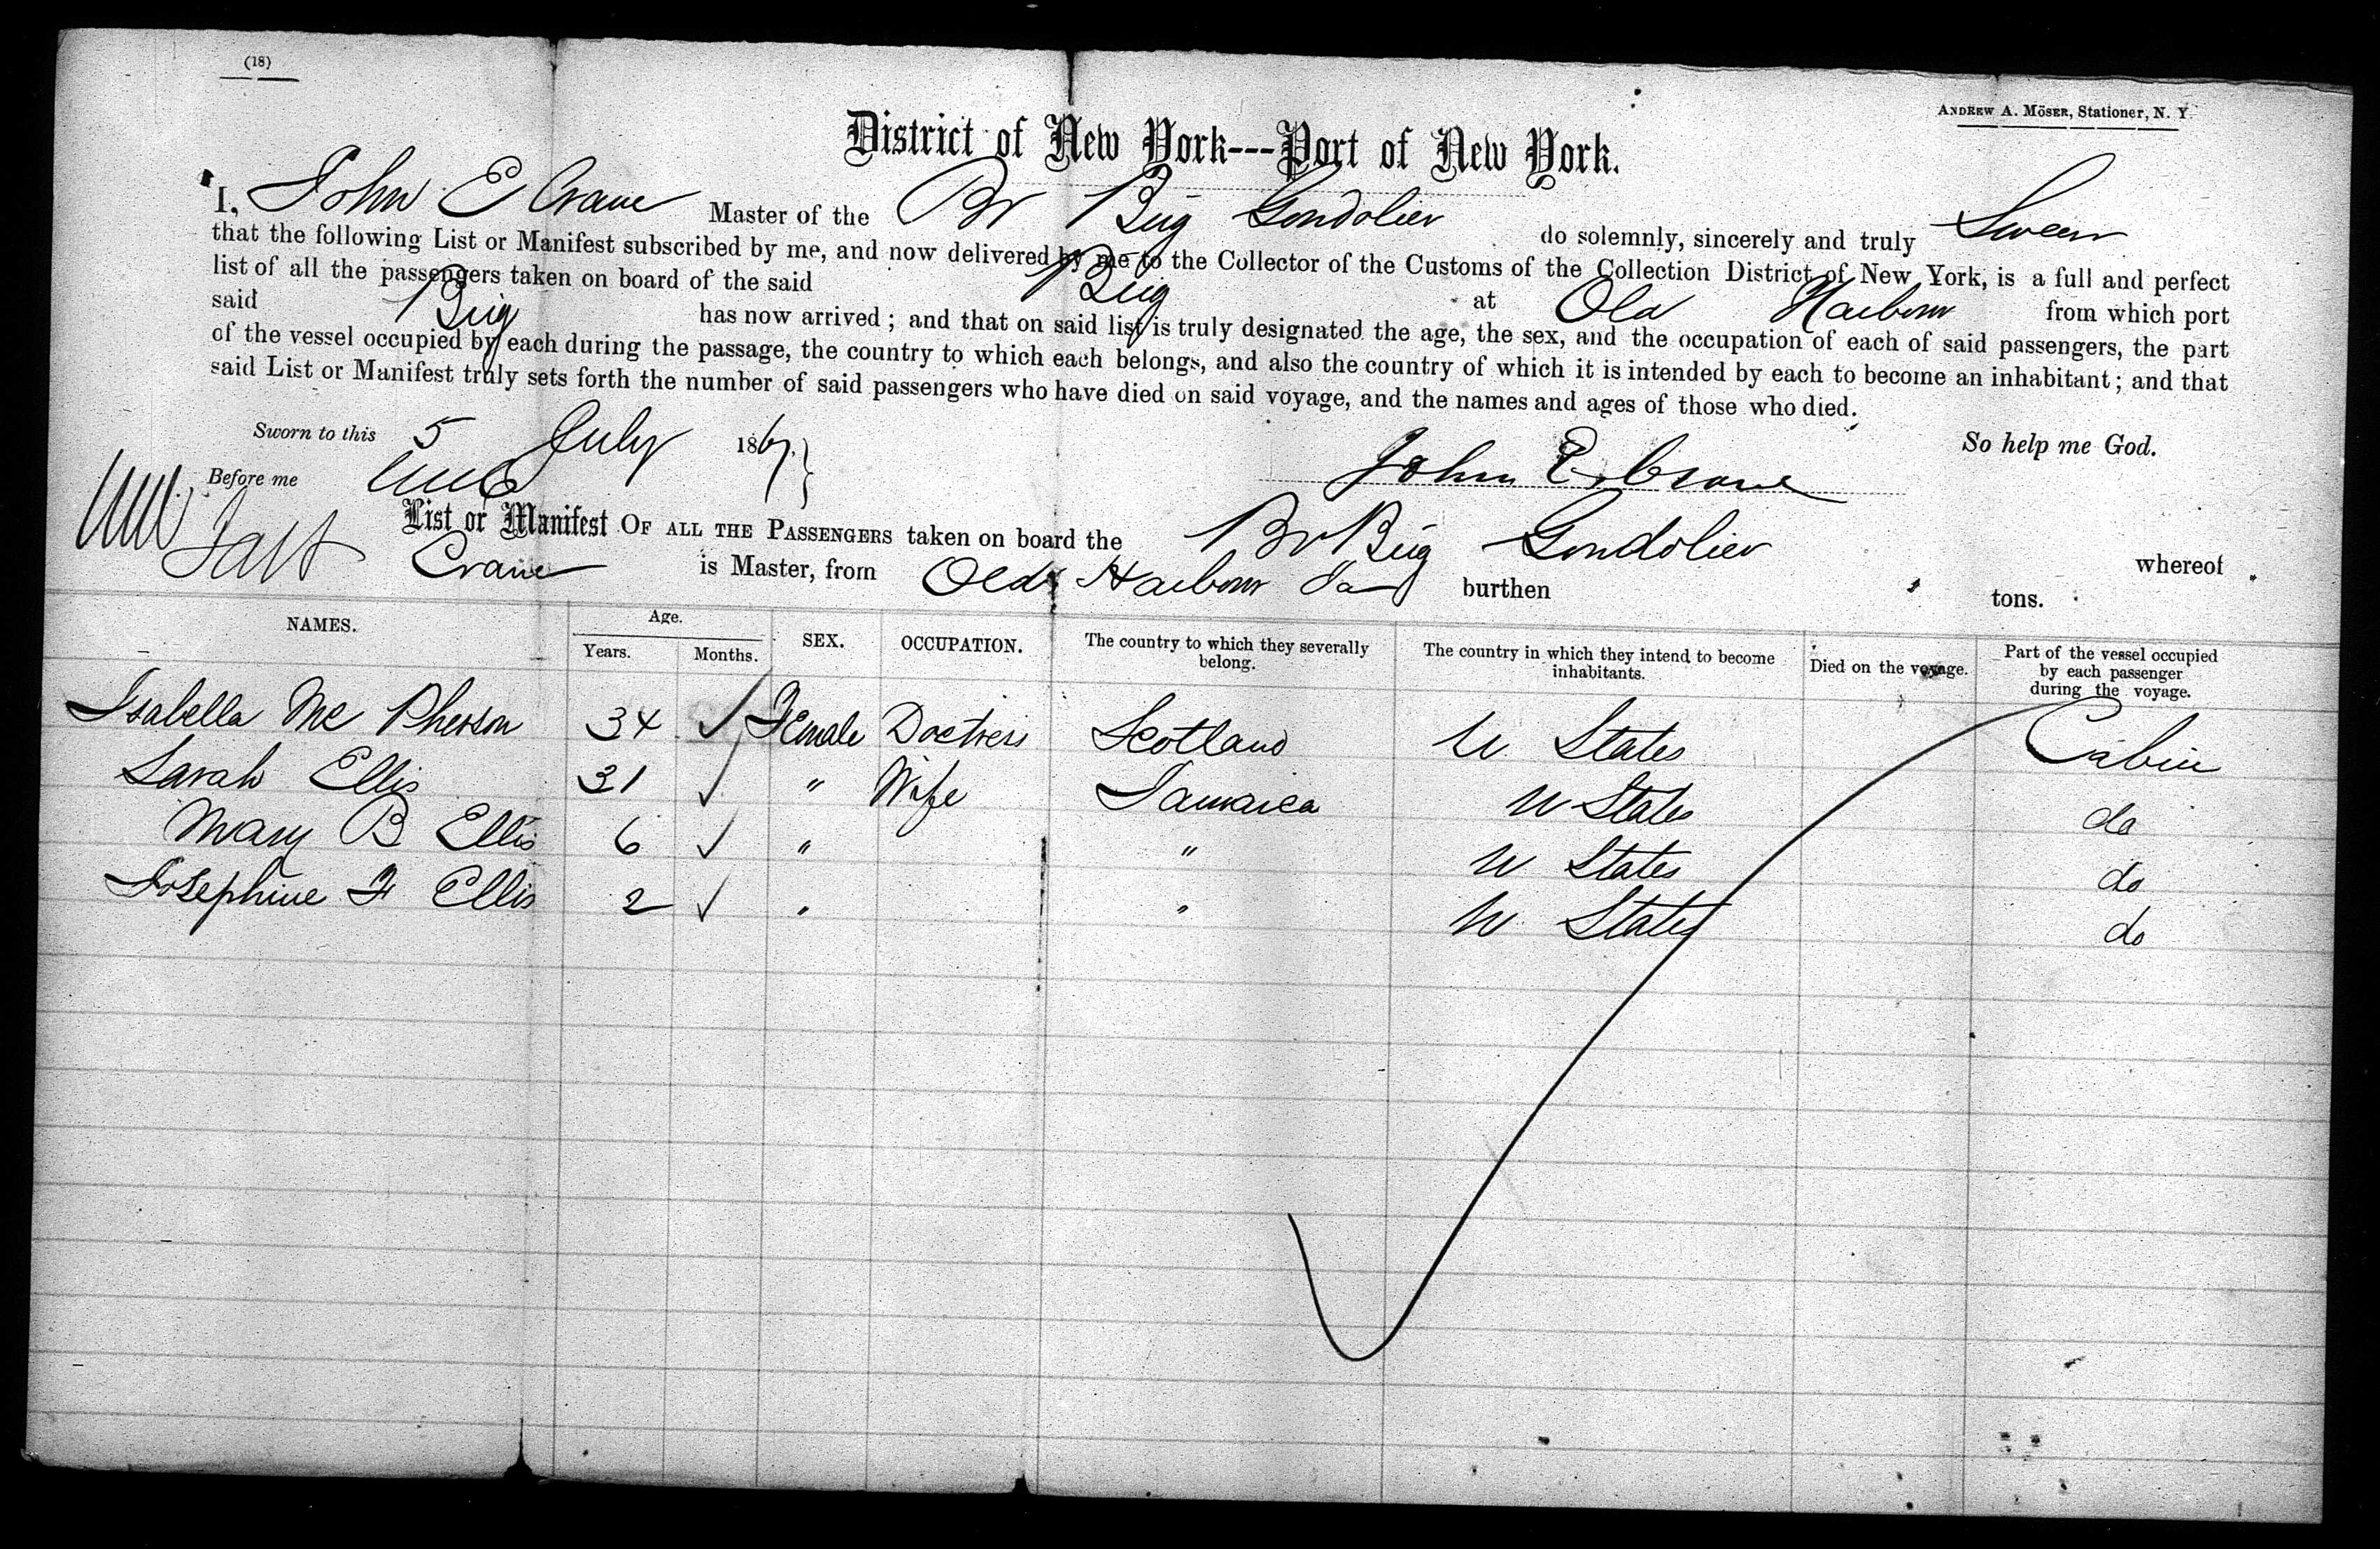 (18)
ANDREW A. MÖSER, Stationer, N. Y.
District of New York---Port of New York.
I, John E Crane Master of the Br Brig Gondolier do solemnly, sincerely and truly Swear
that the following List or Manifest subscribed by me, and now delivered by me to the Collector of the Customs of the Collection District of New York, is a full and perfect
list of all the passengers taken on board of the said Brig at Old Harbour from which port
said Brig has now arrived; and that on said list is truly designated the age, the sex, and the occupation of each of said passengers, the part
of the vessel occupied by each during the passage, the country to which each belongs, and also the country of which it is intended by each to become an inhabitant; and that
said List or Manifest truly sets forth the number of said passengers who have died on said voyage, and the names and ages of those who died.
So help me God.
Sworn to this 5 July 1867.
John E. Crane
Before me
List or Manifest OF ALL THE PASSENGERS taken on board the Br Brig Gondolier whereof
Crane is Master, from Old Harbour Ja burthen tons.
NAMES. Age. Years. Months. SEX. OCCUPATION. The country to which they severally belong. The country in which they intend to become inhabitants. Died on the voyage. Part of the vessel occupied by each passenger during the voyage.
Isabella Mc Pherson 34 ✓ Female Doctress Scotland U States Cabin
Sarah Ellis 31 ✓ " Wife Jamaica U States do
Mary B Ellis 6 ✓ " " U States do
Josephine F Ellis 2 ✓ " " U States do